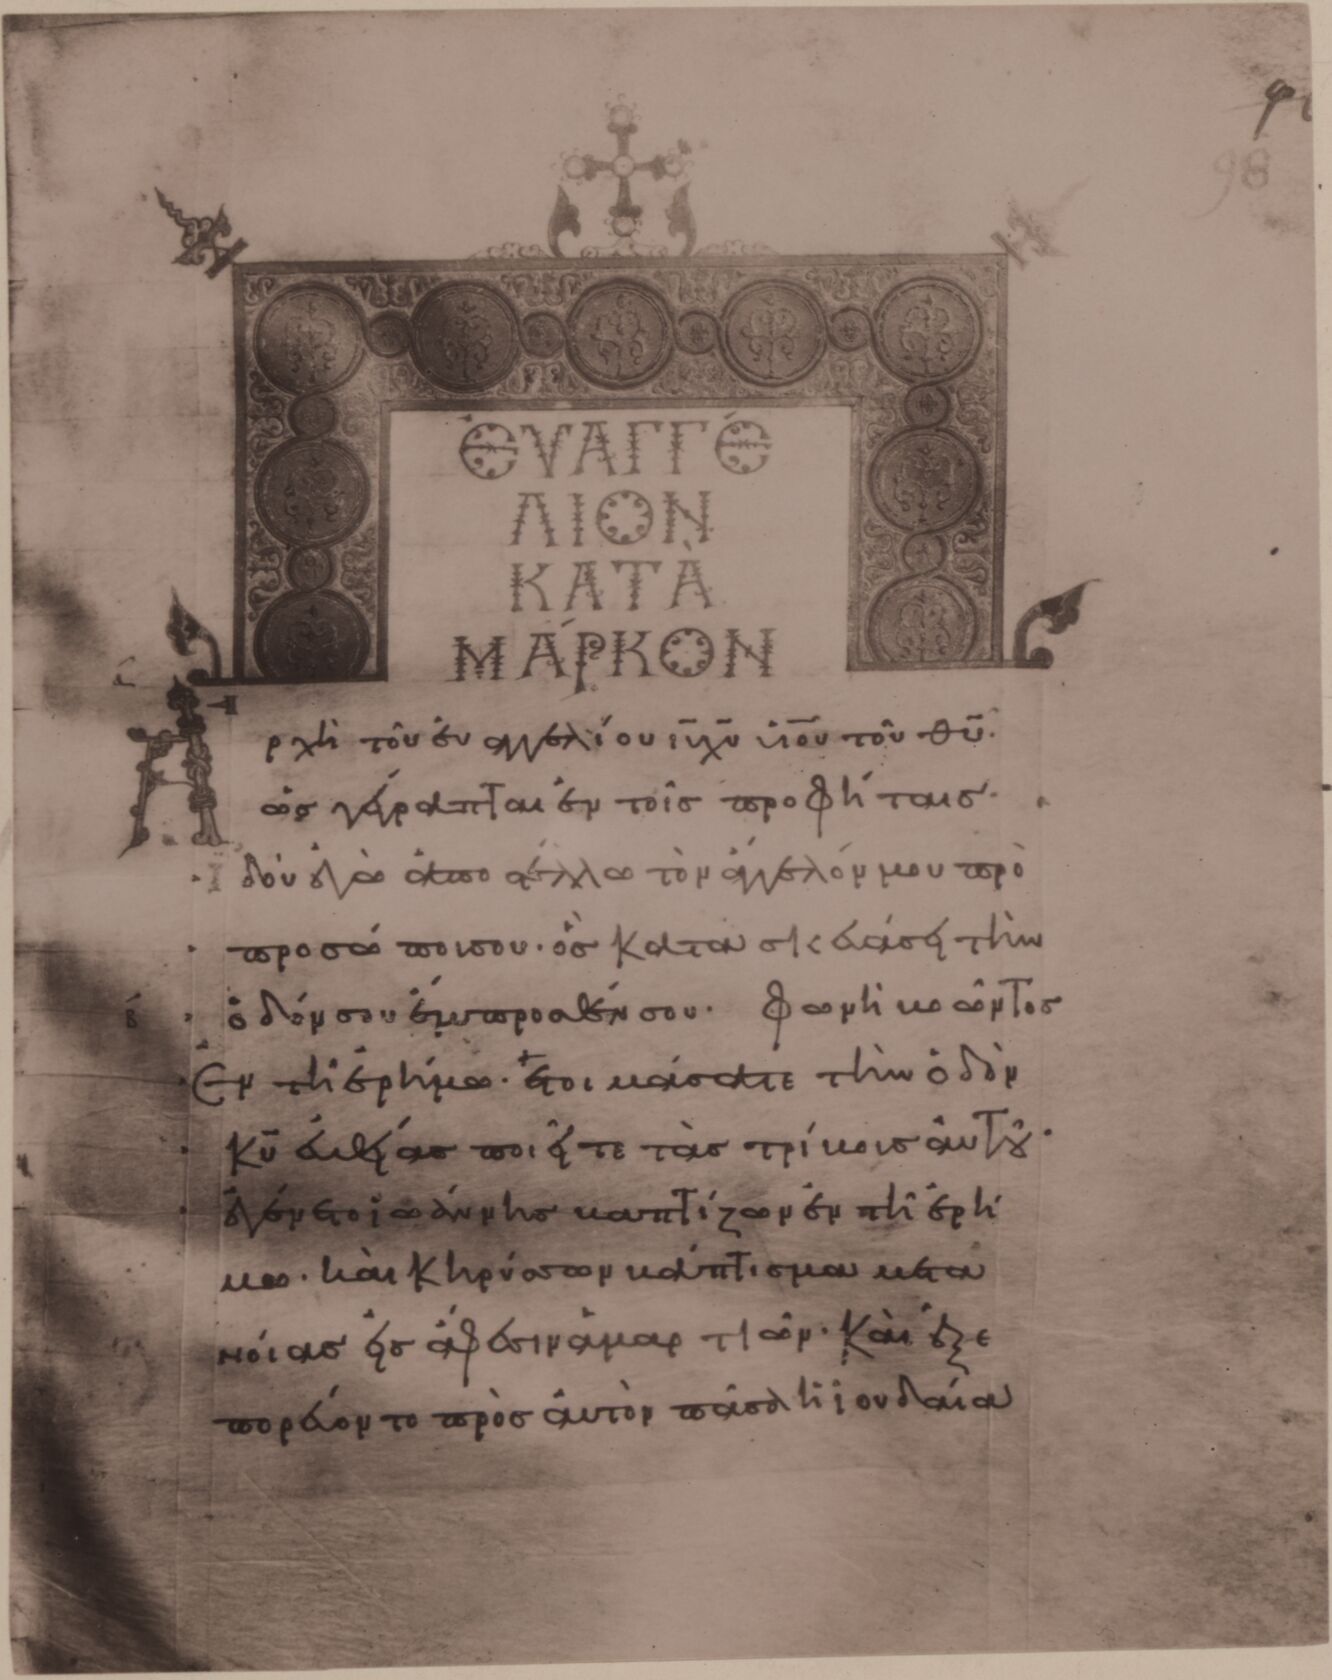 98
ΕΥΑΓΓΕ
ΛΙΟΝ
ΚΑΤᾺ
ΜΆΡΚΟΝ
Ἀρχὴ τοῦ ἐυαγγελίου ι̅υ̅ χ̅υ̅ υἱοῦ τοῦ θ̅υ̅·
ὡς γέγραπται ἐν τοῖς προφήταις·
Ἰδοὺ ἐγὼ ἀποστέλλω τὸν ἄγγελόν μου πρὸ
προσώπου σου· ὃς κατασκευάσει τὴν
ὁδόν σου ἔμπροσθέν σου· Φωνὴ βοῶντος
Ἐν τῇ ἐρήμω· ἑτοιμάσατε τὴν ὁδὸν
κ̅υ̅ ἐυθείας ποιεῖτε τὰς τρίβους ἀυτοῦ·
ἐγένετο ἰωάννης βαπτίζων ἐν τῆ ἐρή
μω· καὶ κηρύσσων βάπτισμα μετα
νοίας εἰς ἄφεσιν ἁμαρτιῶν· Καὶ ἐξε
πορεύοντο πρὸς ἀυτὸν πᾶσα ἡ ἰουδαία